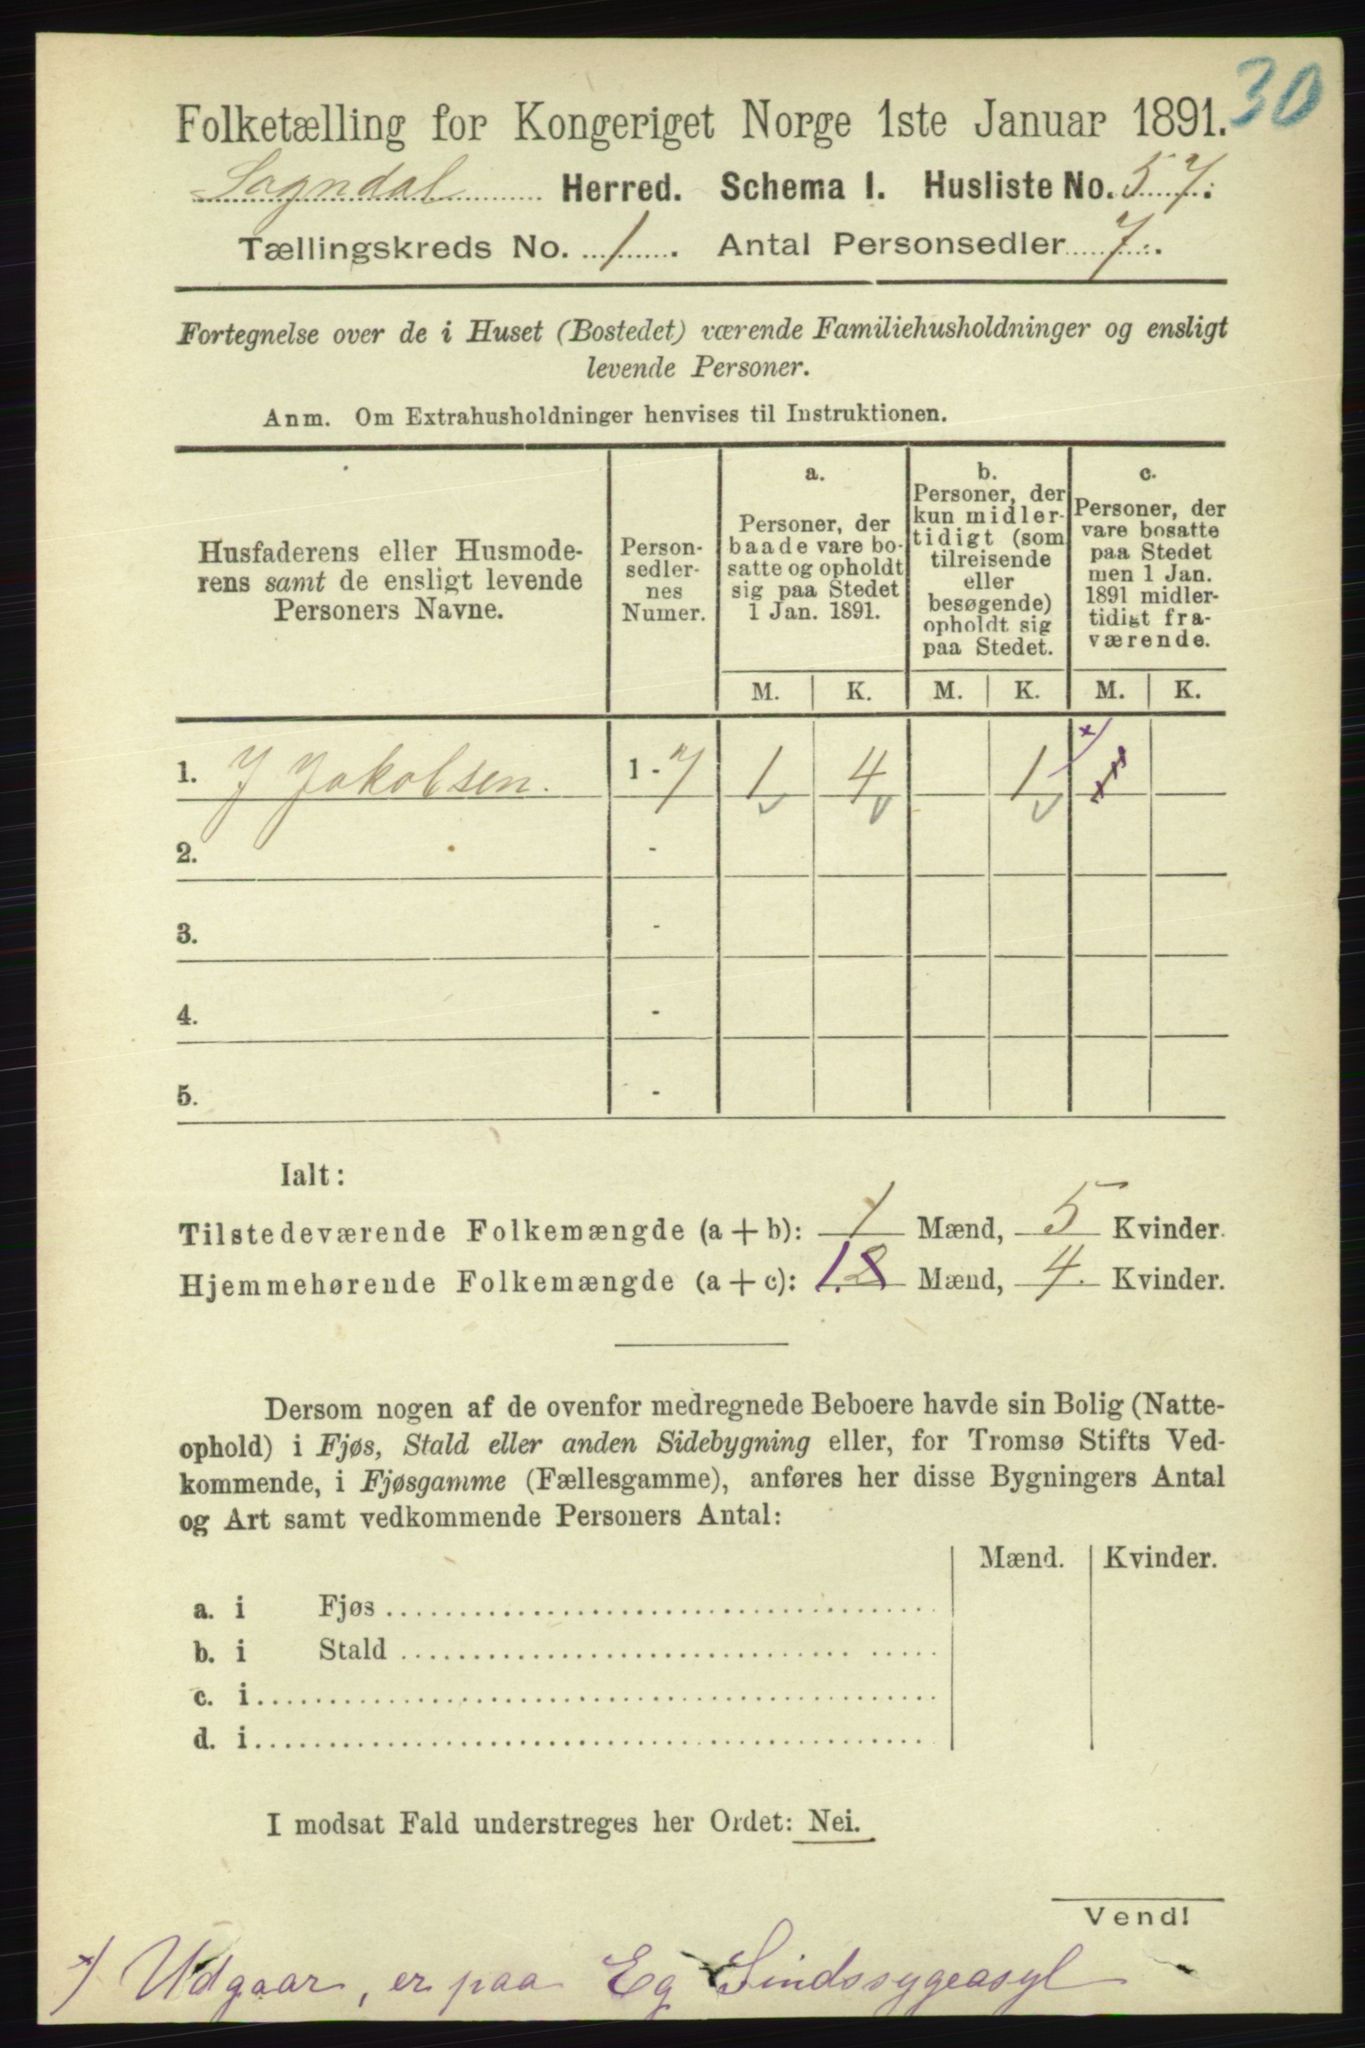 30
Folketælling for Kongeriget Norge 1ste Januar 1891.
Sogndal Herred. Schema I. Husliste No. 57.
Tællingskreds No. 1. Antal Personsedler 7.
Fortegnelse over de i Huset (Bostedet) værende Familiehusholdninger og ensligt
levende Personer.
Anm. Om Extrahusholdninger henvises til Instruktionen.
Husfaderens eller Husmode-
rens samt de ensligt levende
Personers Navne.
Person-
sedler-
nes
Numer.
a.
Personer, der
baade vare bo-
satte og opholdt
sig paa Stedet
1 Jan. 1891.
b.
Personer, der
kun midler-
tidigt (som
tilreisende
eller
besøgende)
opholdt sig
paa Stedet.
c.
Personer, der
vare bosatte
paa Stedet
men 1 Jan.
1891 midler-
tidigt fra-
værende.
M. K. M. K. M. K.
1. J Jakobsen. 1 - 7 1 4 1
2. -
3. -
4. -
5. -
Ialt:
Tilstedeværende Folkemængde (a + b): 1 Mænd, 5 Kvinder.
Hjemmehørende Folkemængde (a + c): 1. 2 Mænd, 4. Kvinder.
Dersom nogen af de ovenfor medregnede Beboere havde sin Bolig (Natte-
ophold) i Fjøs, Stald eller anden Sidebygning eller, for Tromsø Stifts Ved-
kommende, i Fjøsgamme (Fællesgamme), anføres her disse Bygningers Antal
og Art samt vedkommende Personers Antal:
Mænd. Kvinder.
a. i Fjøs
b. i Stald
c. i
d. i
I modsat Fald understreges her Ordet: Nei.
Vend!
x) Udgaar, er paa Eg Sindssygeasyl